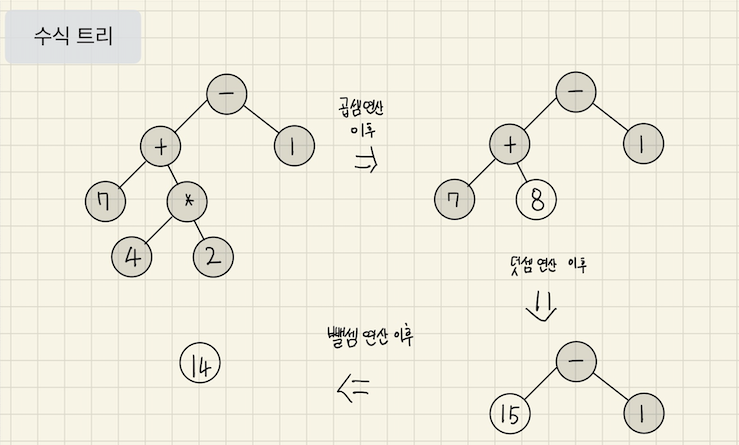 수식 트리
-
+
1
7
*
4
2
곱셈 연산
이후
⇒
-
+
1
7
8
덧셈 연산 이후
⇓
-
15
1
뺄셈 연산 이후
⇐
14